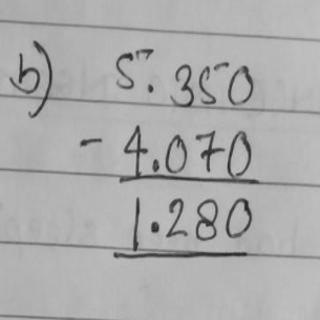 b) 5.350
- 4.070
1.280